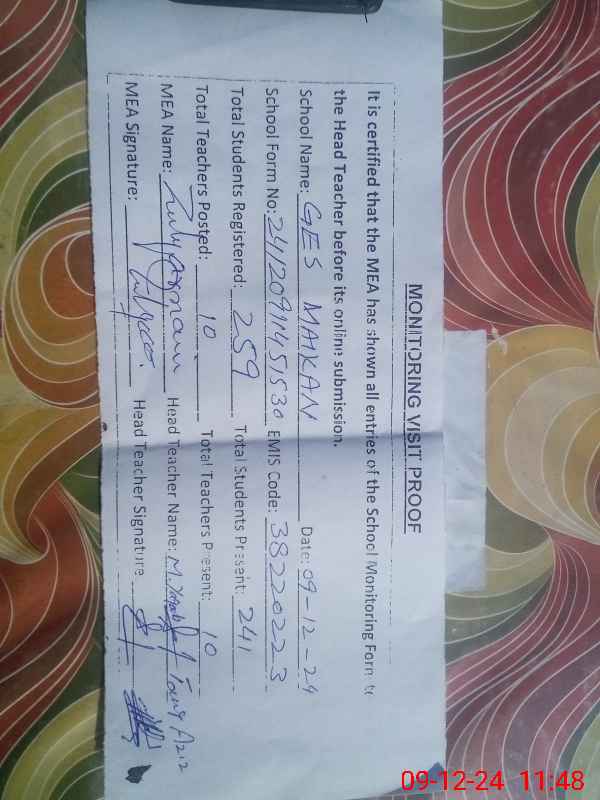 MONITORING VISIT PROOF
It is certified that the MEA has shown all entries of the School Monitoring Form to
the Head Teacher before its online submission.
School Name: GES MAKAN Date: 09-12-24
School Form No: 24120911451530 EMIS Code: 38220223
Total Students Registered: 259 Total Students Present: 241
Total Teachers Posted: 10 Total Teachers Present: 10
MEA Name: Head Teacher Name: M. Tariq Aziz
MEA Signature: Head Teacher Signature
09-12-24 11:48